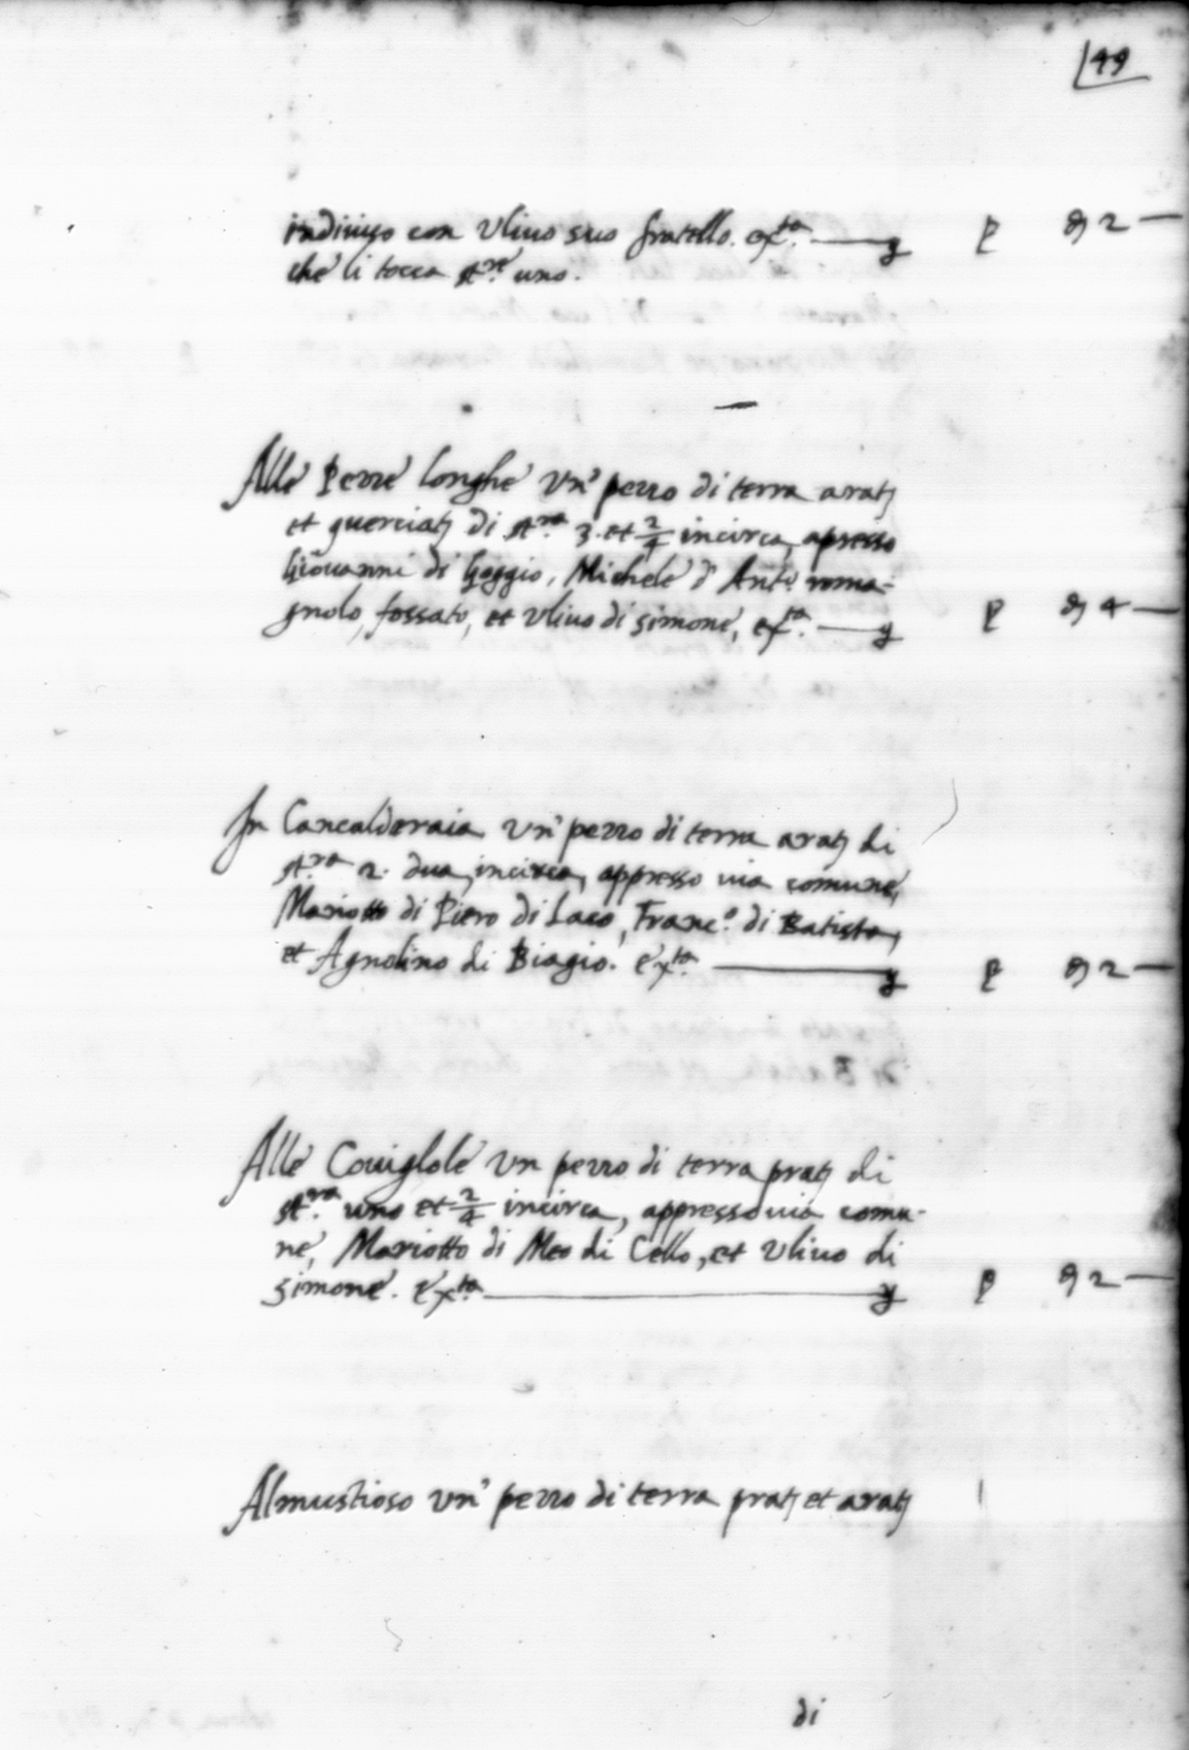 49
indiuiso con Uliuo suo fratello. ext.ª
che li tocca st.re uno.
Alle Pezze longhe un' pezzo di terra arat.
et querciat. di st.ra 3. et 2/4 incirca, apresso
Giouanni di Goggio, Michele d' Ant.º roma-
gnolo, fossato, et Uliuo di simone, ext.ª
4
In Cancalderaia un' pezzo di terra arat. di
st.ra 2. dua, incirca, appresso uia comune,
Mariotto di Piero di Laco, Franc.º di Batista,
et Agnolino di Biagio. Ext.ª
2
Alle Couiglole un pezzo di terra prat. di
st.ra uno et 2/4 incirca, appresso uia comu-
ne, Mariotto di Meo di Cello, et Uliuo di
simone. Ext.ª
2
Al mustioso un' pezzo di terra prat. et arat.
di